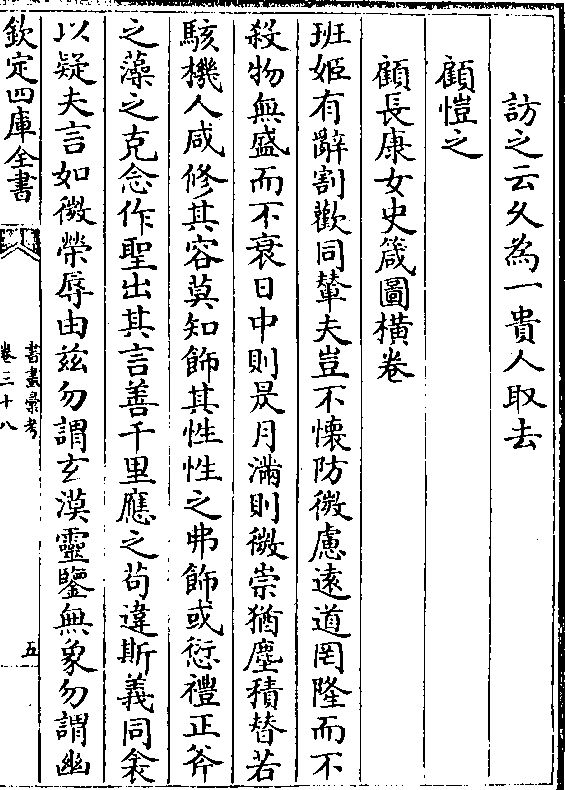 訪之云久為一貴人取去
顧愷之
顧長康女史箴圖横卷
班姬有辭割歡同輦夫豈不懐防微慮遠道罔隆而不
殺物無盛而不衰日中則昃月滿則微崇猶塵積替若
駭機人咸修其容莫知飾其性性之弗飾或愆禮正斧
之藻之克念作聖出其言善千里應之茍違斯義同衾
以疑夫言如微榮辱由兹勿謂玄漠靈鑒無象勿謂幽
欽定四庫全書
書畫彚考
卷三十八
五